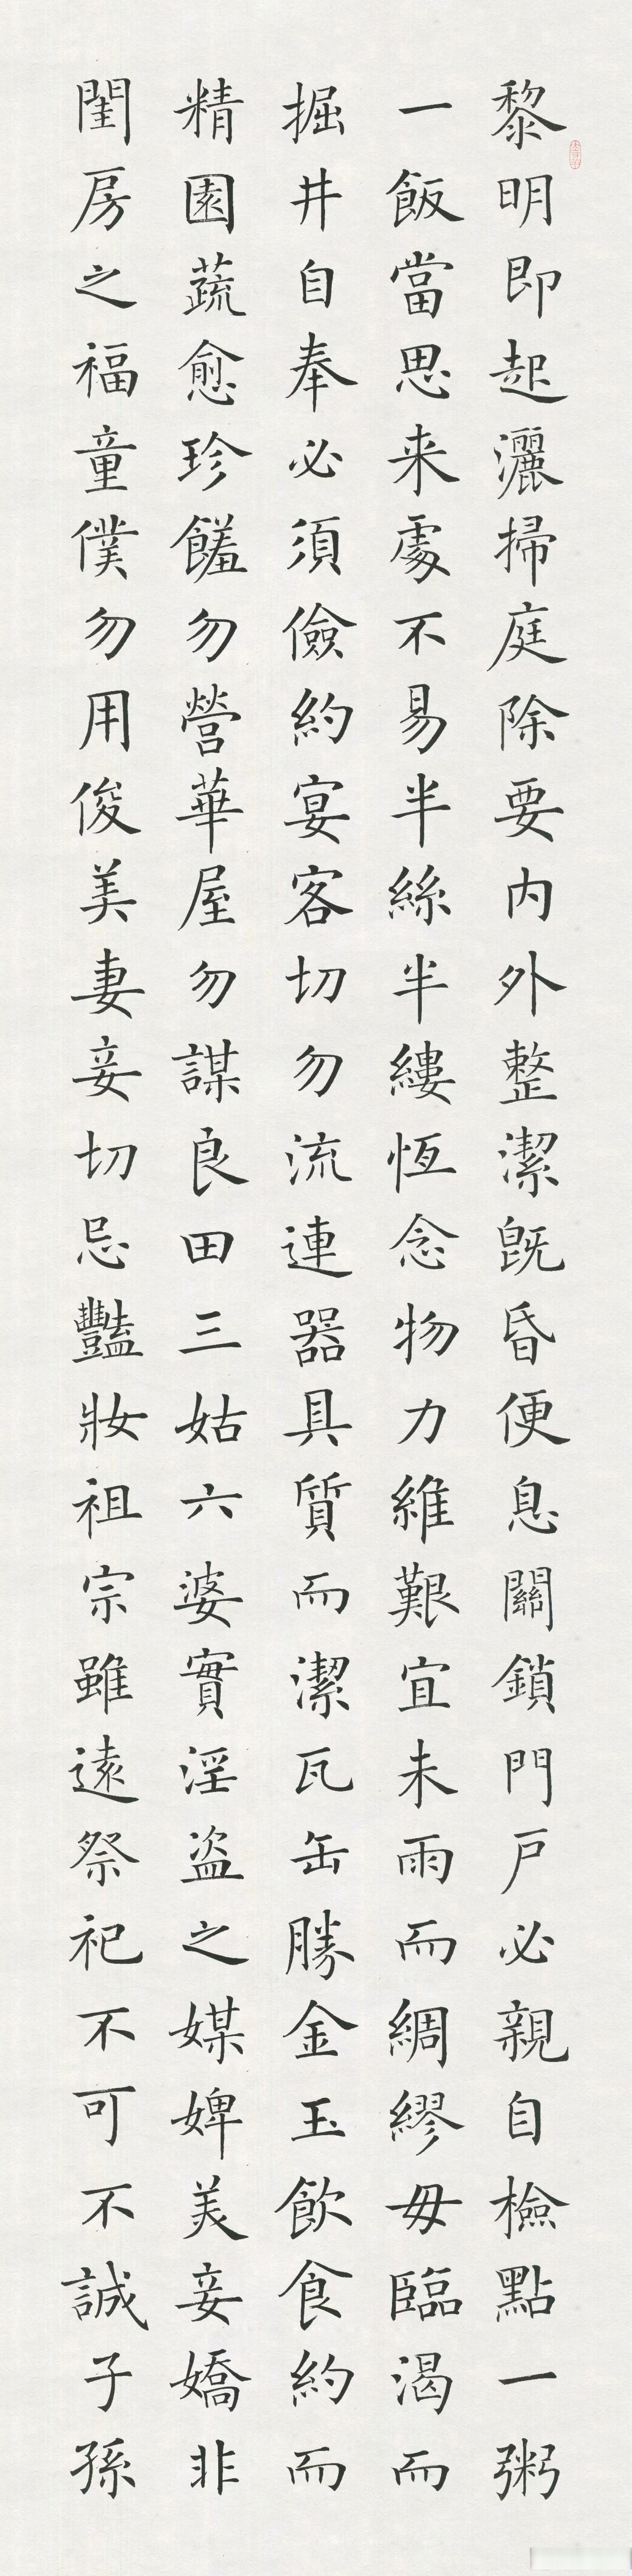 黎明即起灑掃庭除要内外整潔既昏便息關鎖門戶必親自檢點一粥
一飯當思来處不易半絲半縷恆念物力維艱宜未雨而綢繆毋臨渴而
掘井自奉必須儉約宴客切勿流連器具質而潔瓦缶勝金玉飲食約而
精園蔬愈珍饈勿營華屋勿謀良田三姑六婆實淫盜之媒婢美妾嬌非
閨房之福童僕勿用俊美妻妾切忌豔妝祖宗雖遠祭祀不可不誠子孫